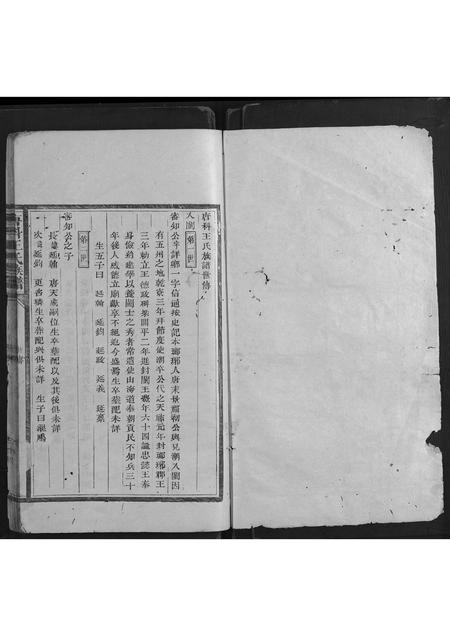 唐科王氏族譜世傳
入閩 第一世
審知公字詳卿一字信通按史記本瑯琊人唐末景福初公與兄潮入閩因
有五州之地乾寧三年拜節度使潮卒公代之天祐元年封瑯琊王
三年勅立王德政碑梁開平二年進封閩王臺年六十四諡忠懿王奉
身儉約處學以養閩士之秀者常遣使由海道奉朝貢民不知兵三十
年後人感德立廟獻享不絕迄今盛焉生卒葬配未詳
生五子曰 延翰 延鈞 延政 延義 延稟
第二世
審知公之子
長曰延翰 唐天成嗣位生卒葬配以及其後俱未詳
次曰延鈞 更名璘生卒葬配與俱未詳 生子曰繼鵬